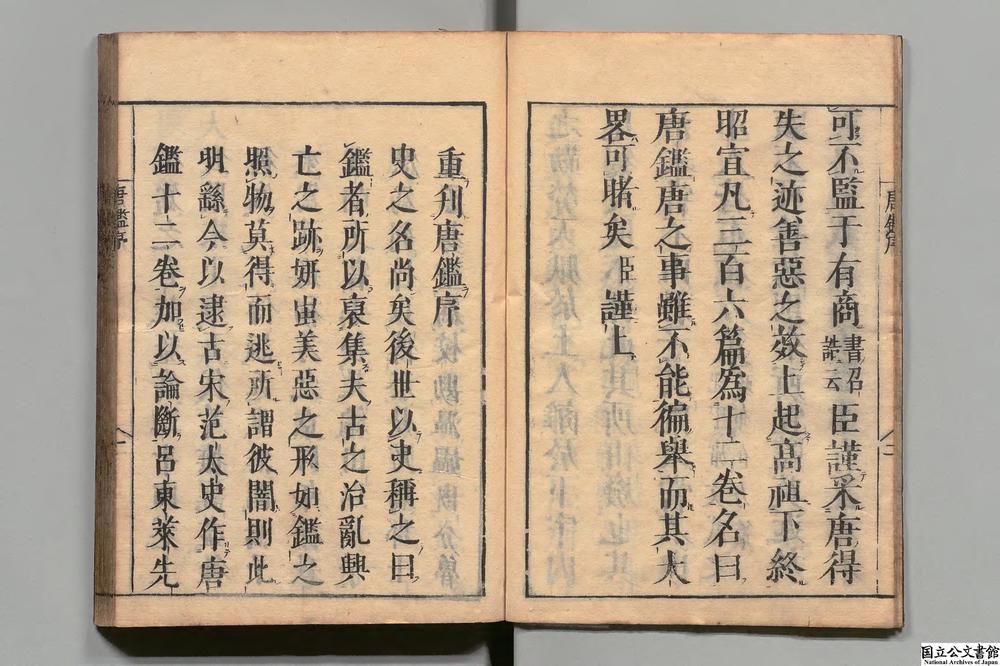 可不監于有商書召誥云臣謹采唐得
失之迹善惡之效上起高祖下終
昭宣凡三百六篇爲十二卷名曰
唐鑑唐之事雖不能徧舉而其大
畧可睹矣臣謹上
重刋唐鑑序
史之名尚矣後世以史稱之曰
鑑者所以裒集夫古之治亂興
亡之跡妍蚩美惡之形如鑑之
照物莫得而逃所謂彼闇則此
明繇今以逮古宋范太史作唐
鑑十二卷加以論斷呂東萊先
唐鑑序
唐鑑序
国立公文書館
National Archives of Japan